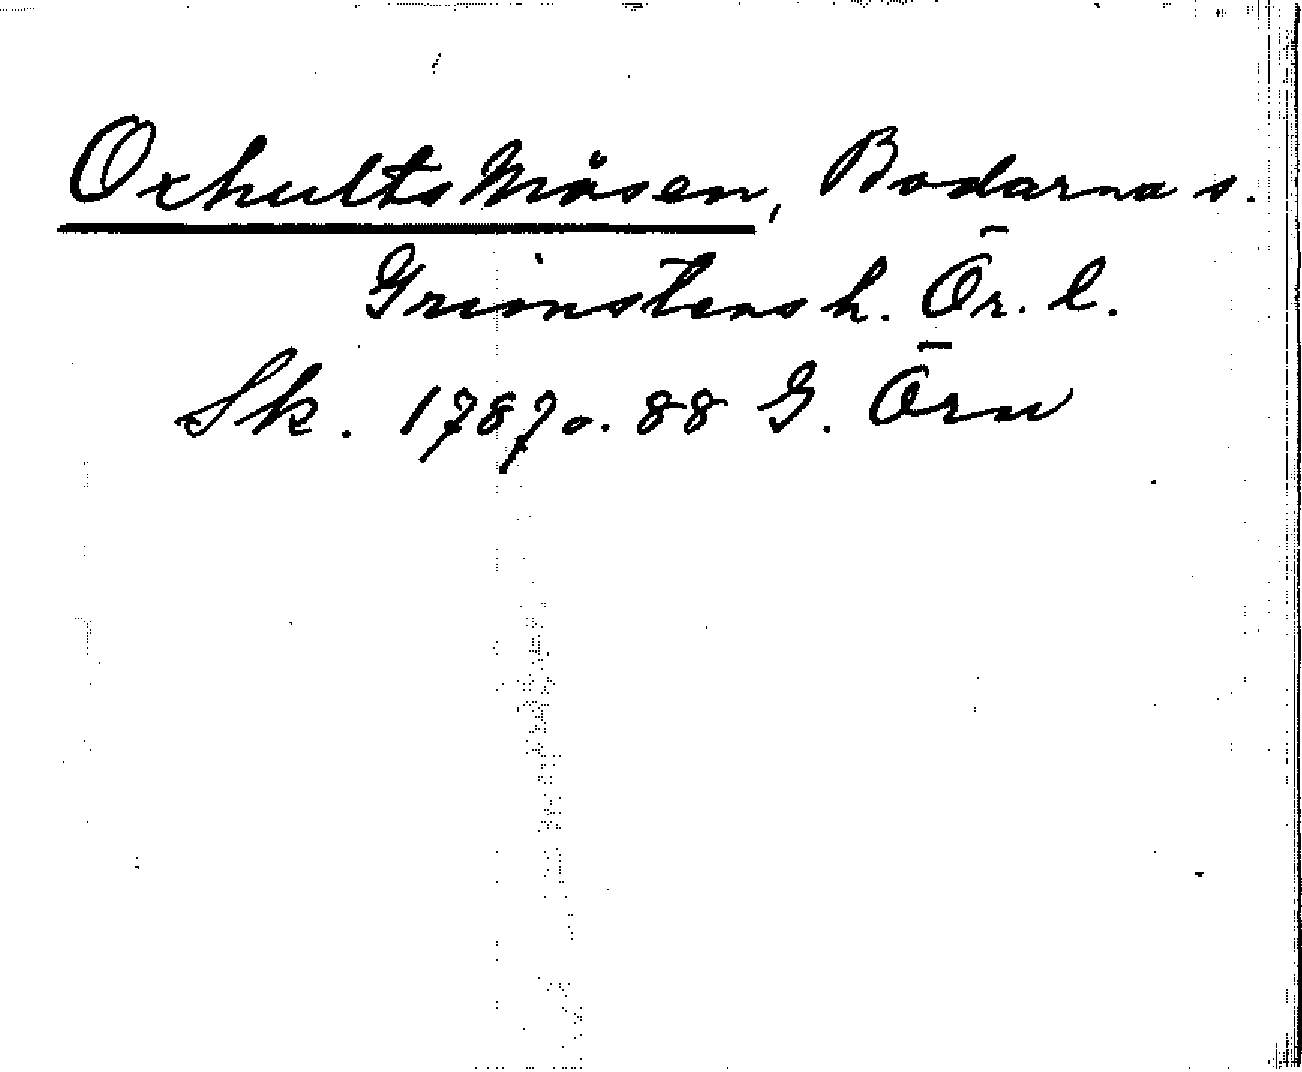 Oxhults Måsen, Bodarna s.
Grimstens h. Ör. l.
Sk. 1787 o. 88 G. Örn